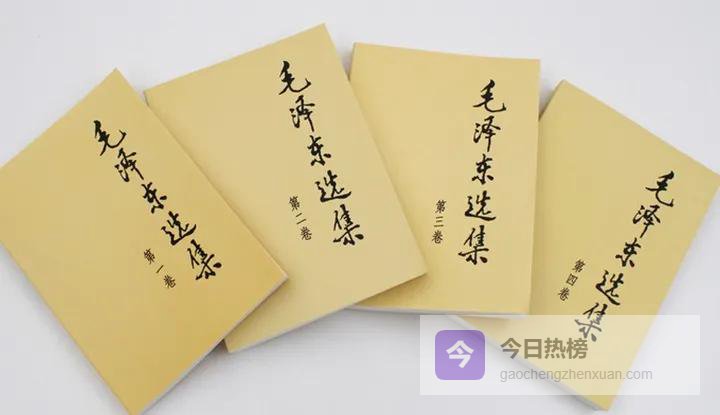 毛泽东选集
第一卷
毛泽东选集
第二卷
毛泽东选集
第三卷
毛泽东选集
第四卷
今
今日热榜
gaochengzhenxuan.com